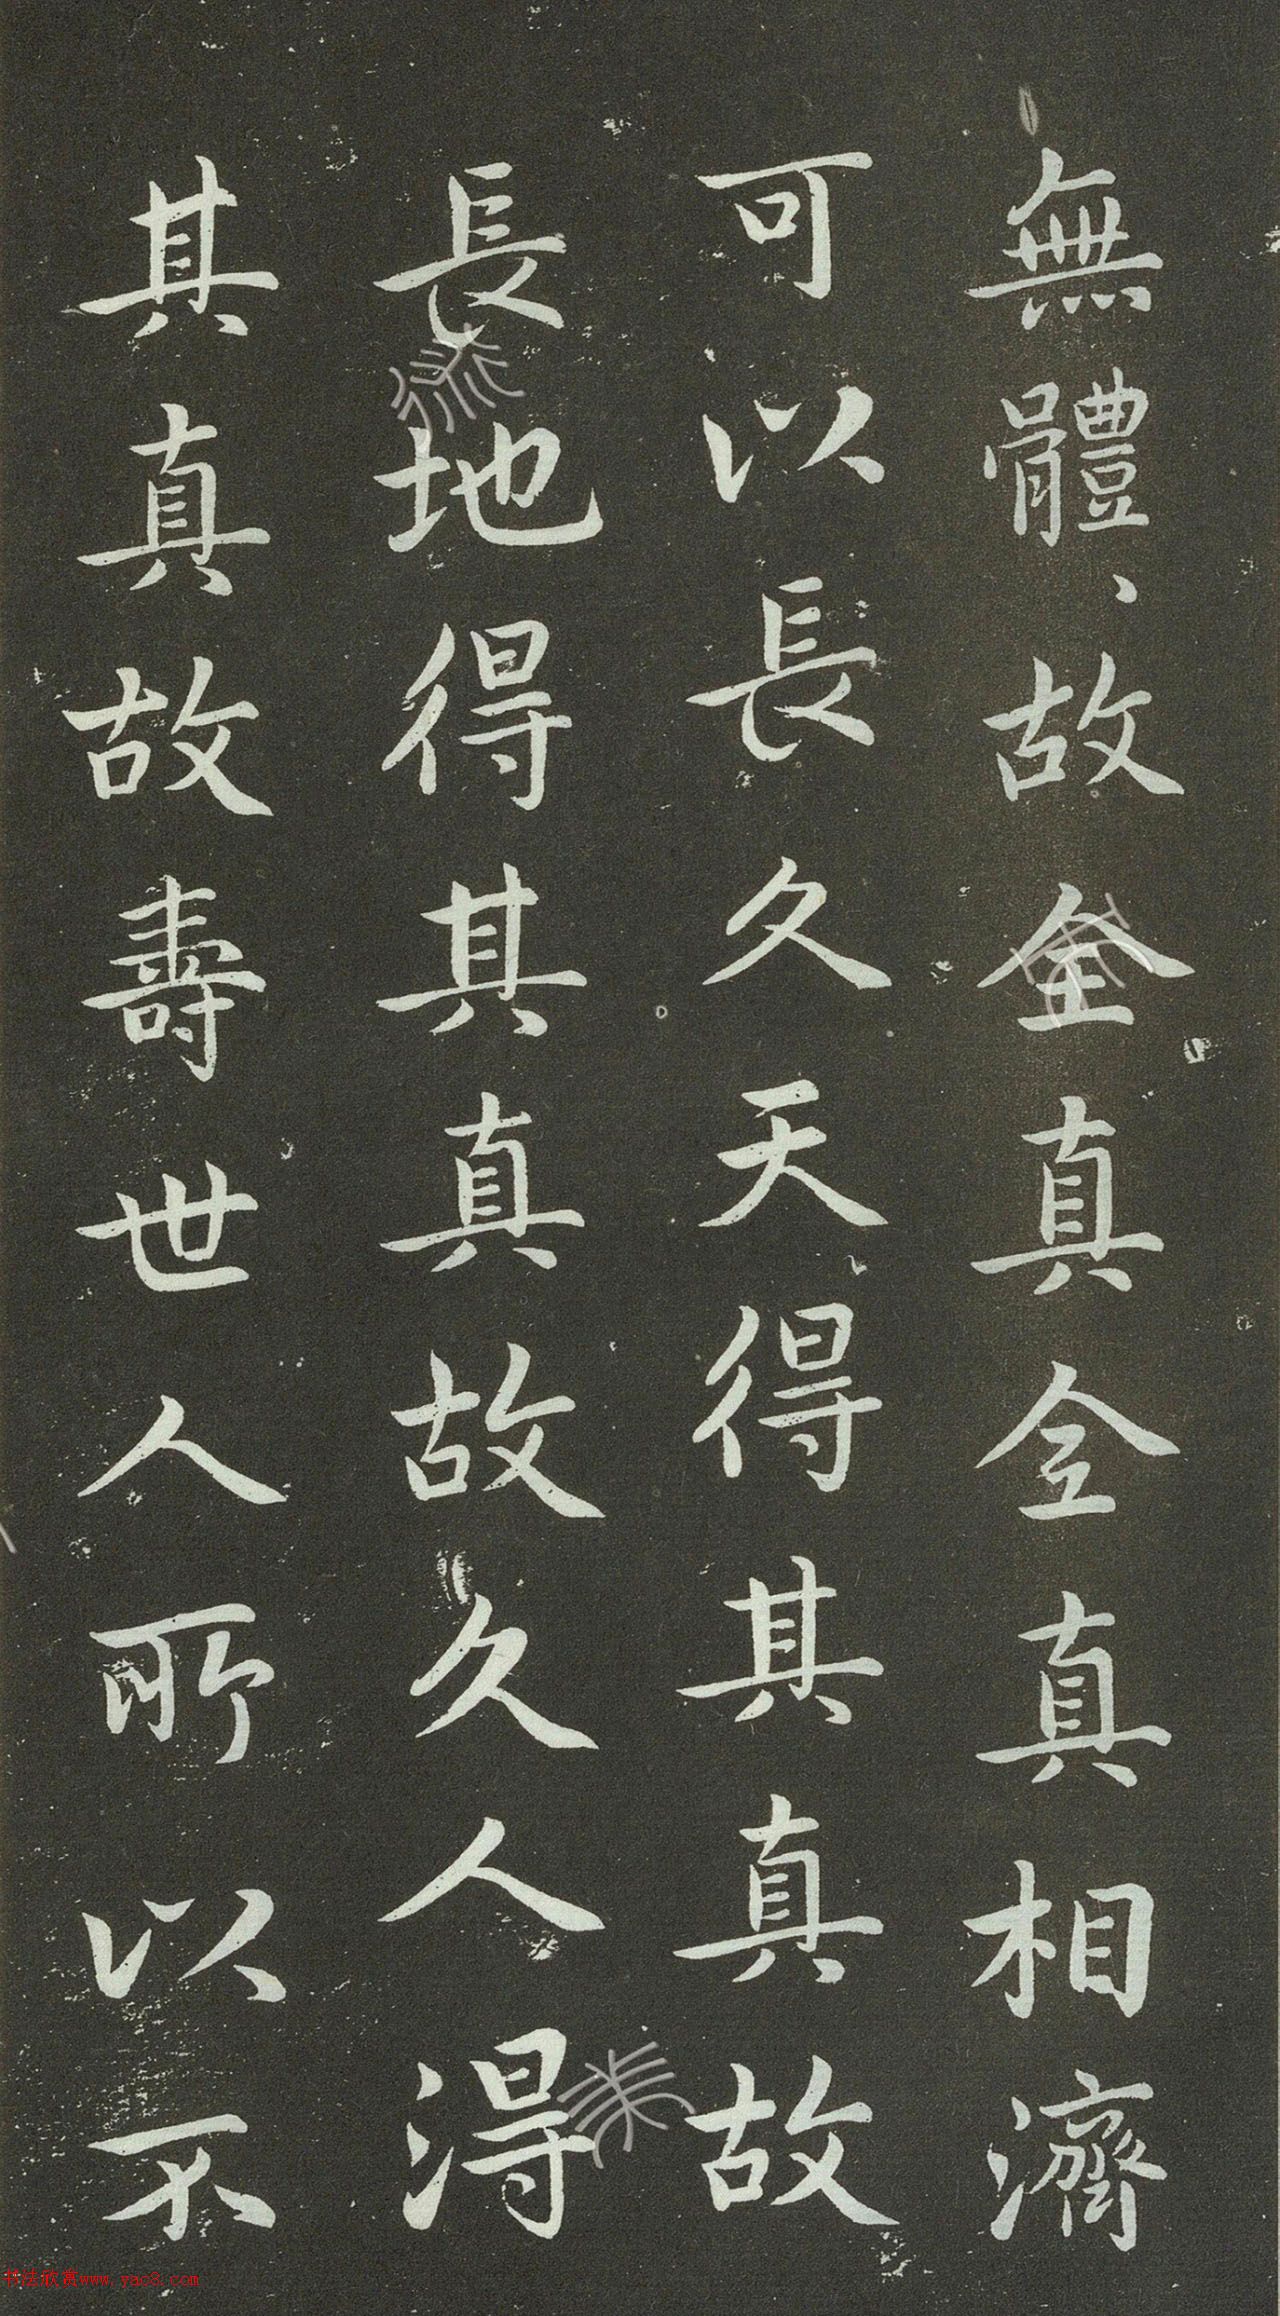 無體、故全真全真相濟
可以長久天得其真故
長地得其真故久人淂
其真故壽世人所以不
书法欣赏www.yac8.com